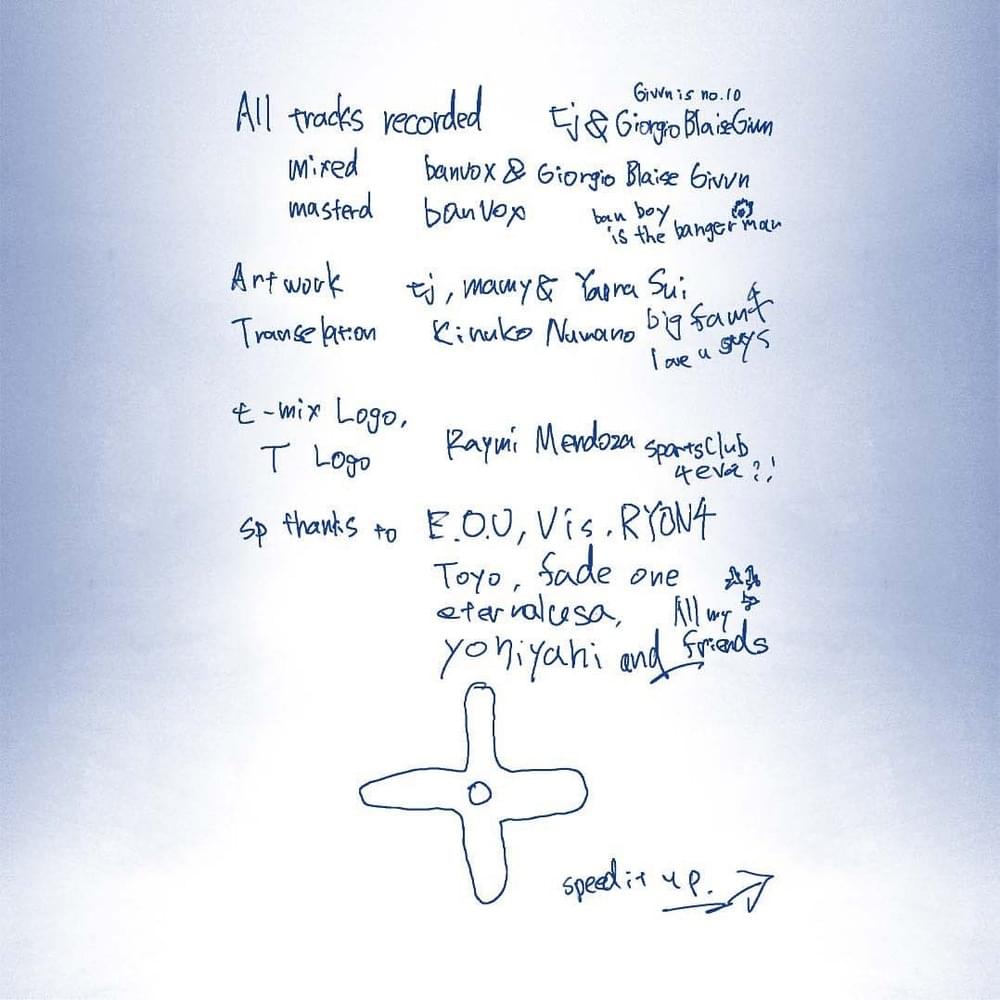 Givvn is no.10
All tracks recorded tj & Giorgio Blaise Givvn
mixed banvox & Giorgio Blaise Givvn
masterd banvox ban boy
is the banger man
Artwork tj, mamy & Yaera Sui
Translation Kinuko Numano big fam4
love u guys
t-mix Logo,
T Logo Raymi Mendoza sportsClub
4eva?!
sp thanks to E.O.U, Vis, RYON4
Toyo, fade one
eternalcesa, All my
yohiyahi and friends
speed it up.